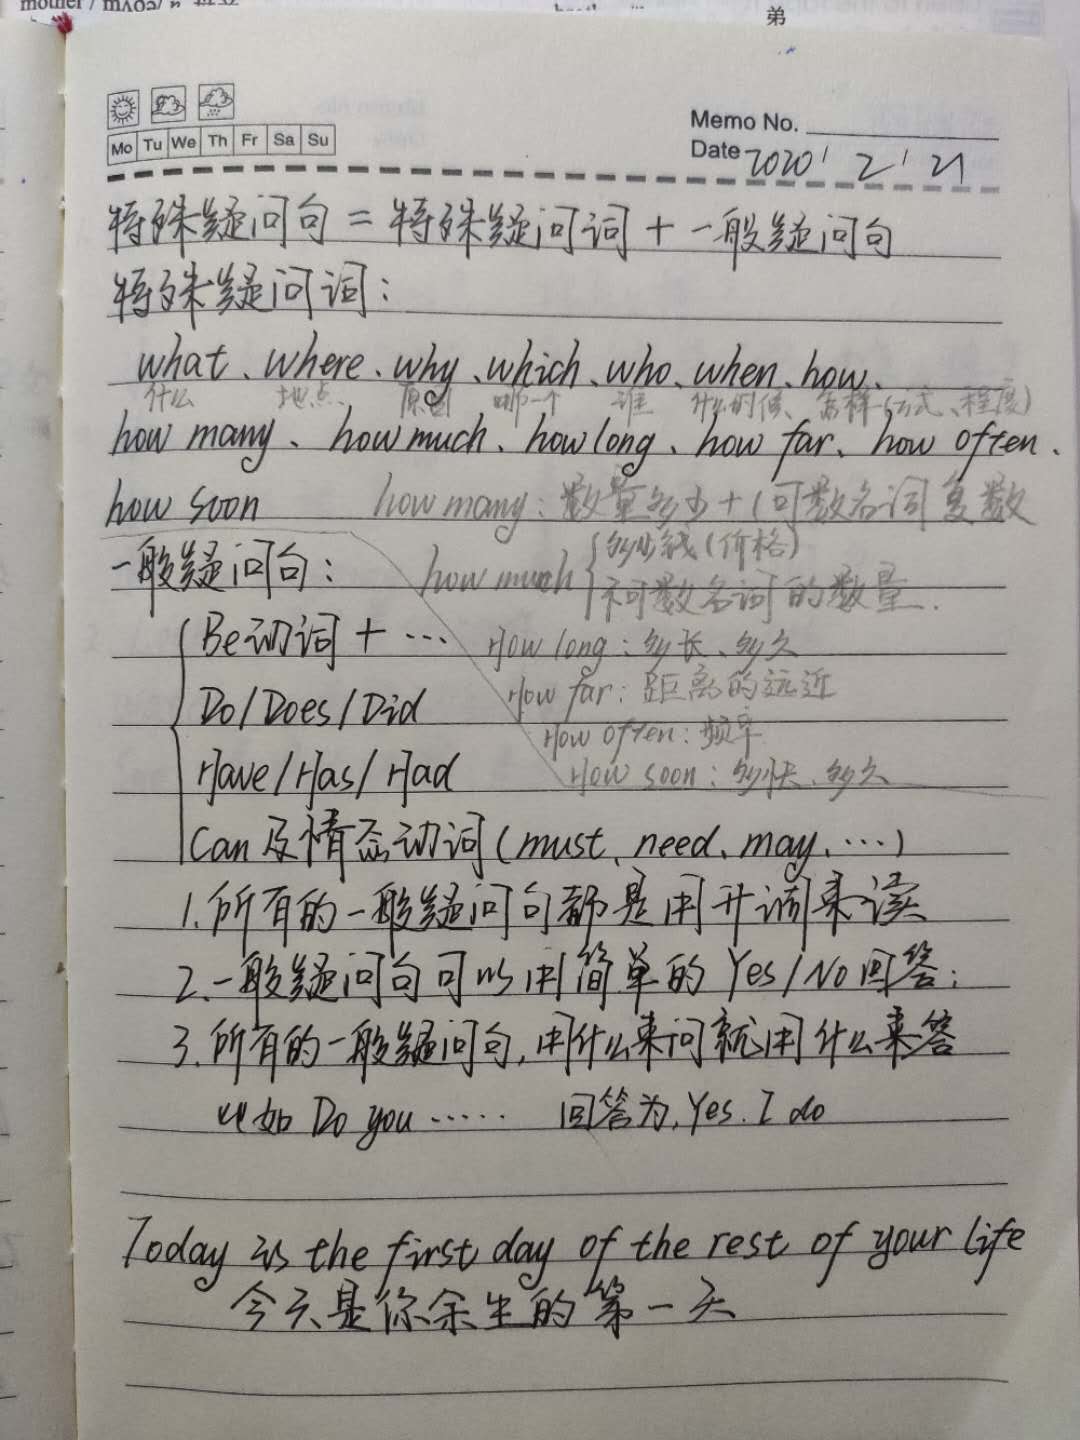 弟
Memo No.
Mo Tu We Th Fr Sa Su
Date 2020' 2' 21
特殊疑问句 = 特殊疑问词 + 一般疑问句
特殊疑问词:
what、where、why、which、who、when、how、
什么 地点 原因 哪一个 谁 什么时候 怎样(方式、程度)
how many、how much、how long、how far、how often、
how soon how many: 数量多少 + (可数名词复数
一般疑问句: how much { 多少钱(价格)
不可数名词的数量.
Be动词 + … How long: 多长、多久
Do/Does/Did How far: 距离的远近
How often: 频率
Have/Has/Had How soon: 多快、多久
Can及情态动词(must、need、may、…)
1.所有的一般疑问句都是用升调来读
2.一般疑问句可以用简单的 Yes/No回答;
3.所有的一般疑问句,用什么来问就用什么来答
比如 Do you …… 回答为, Yes. I do
Today is the first day of the rest of your life
今天是你余生的第一天